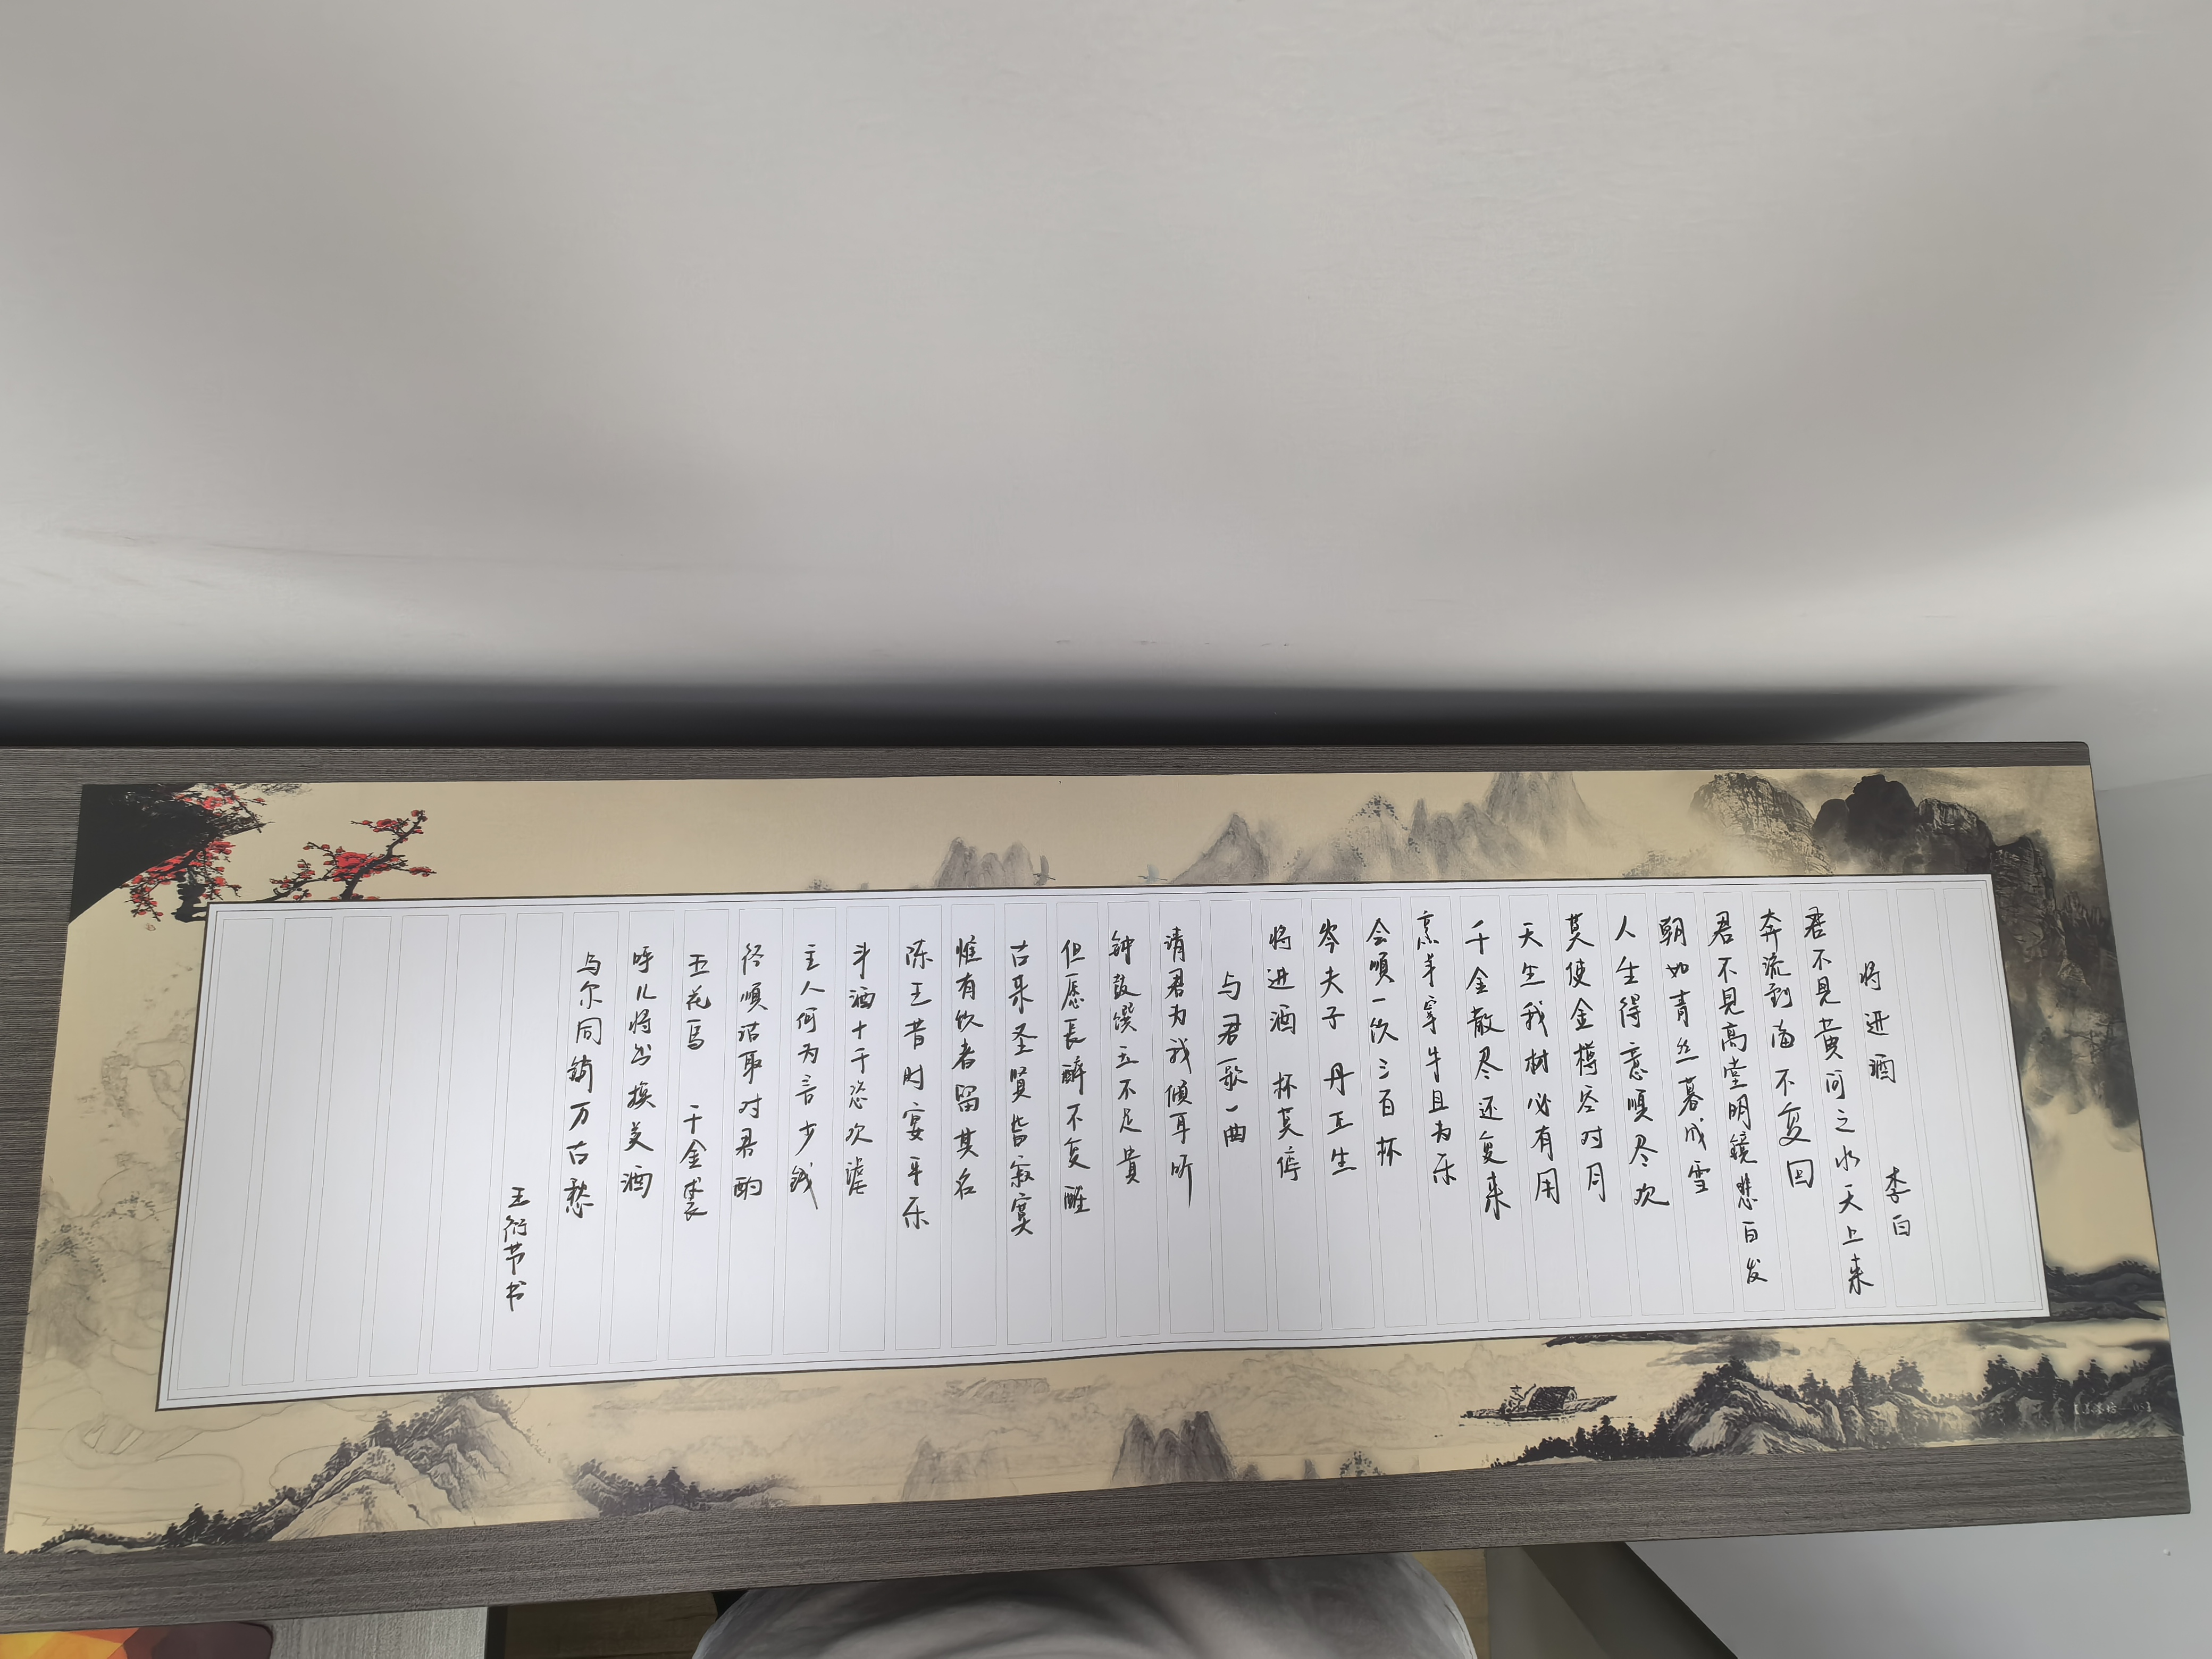 将进酒 李白
君不見黄河之水天上来
奔流到海不复回
君不見高堂明镜悲白发
朝如青丝暮成雪
人生得意須尽欢
莫使金樽空对月
天生我材必有用
千金散尽还复来
烹羊宰牛且为乐
会須一饮三百杯
岑夫子 丹丘生
将进酒 杯莫停
与君歌一曲
请君为我倾耳听
钟鼓馔玉不足贵
但愿長醉不复醒
古来圣贤皆寂寞
惟有饮者留其名
陈王昔时宴平乐
斗酒十千恣欢谑
主人何为言少钱
径須沽取对君酌
五花马 千金裘
呼儿将出换美酒
与尔同销万古愁
王衍节书